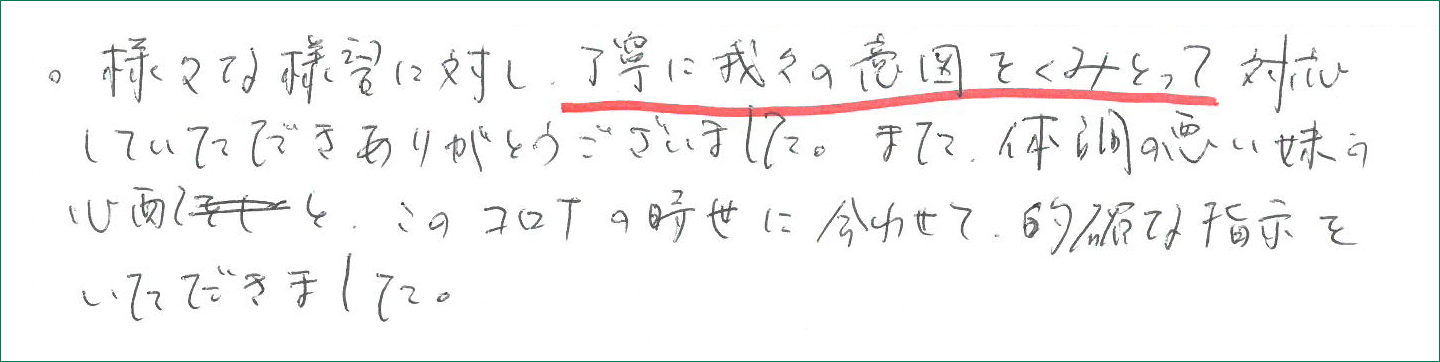 。様々な様望に対し、丁寧に我々の意図をくみとって対応
していただきありがとうございました。また、体調の悪い妹の
心配と、このコロナの時世に合わせて、的確な指示を
いただきました。